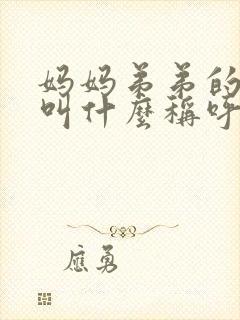 妈妈弟弟的
叫什麼稱呼
應勇